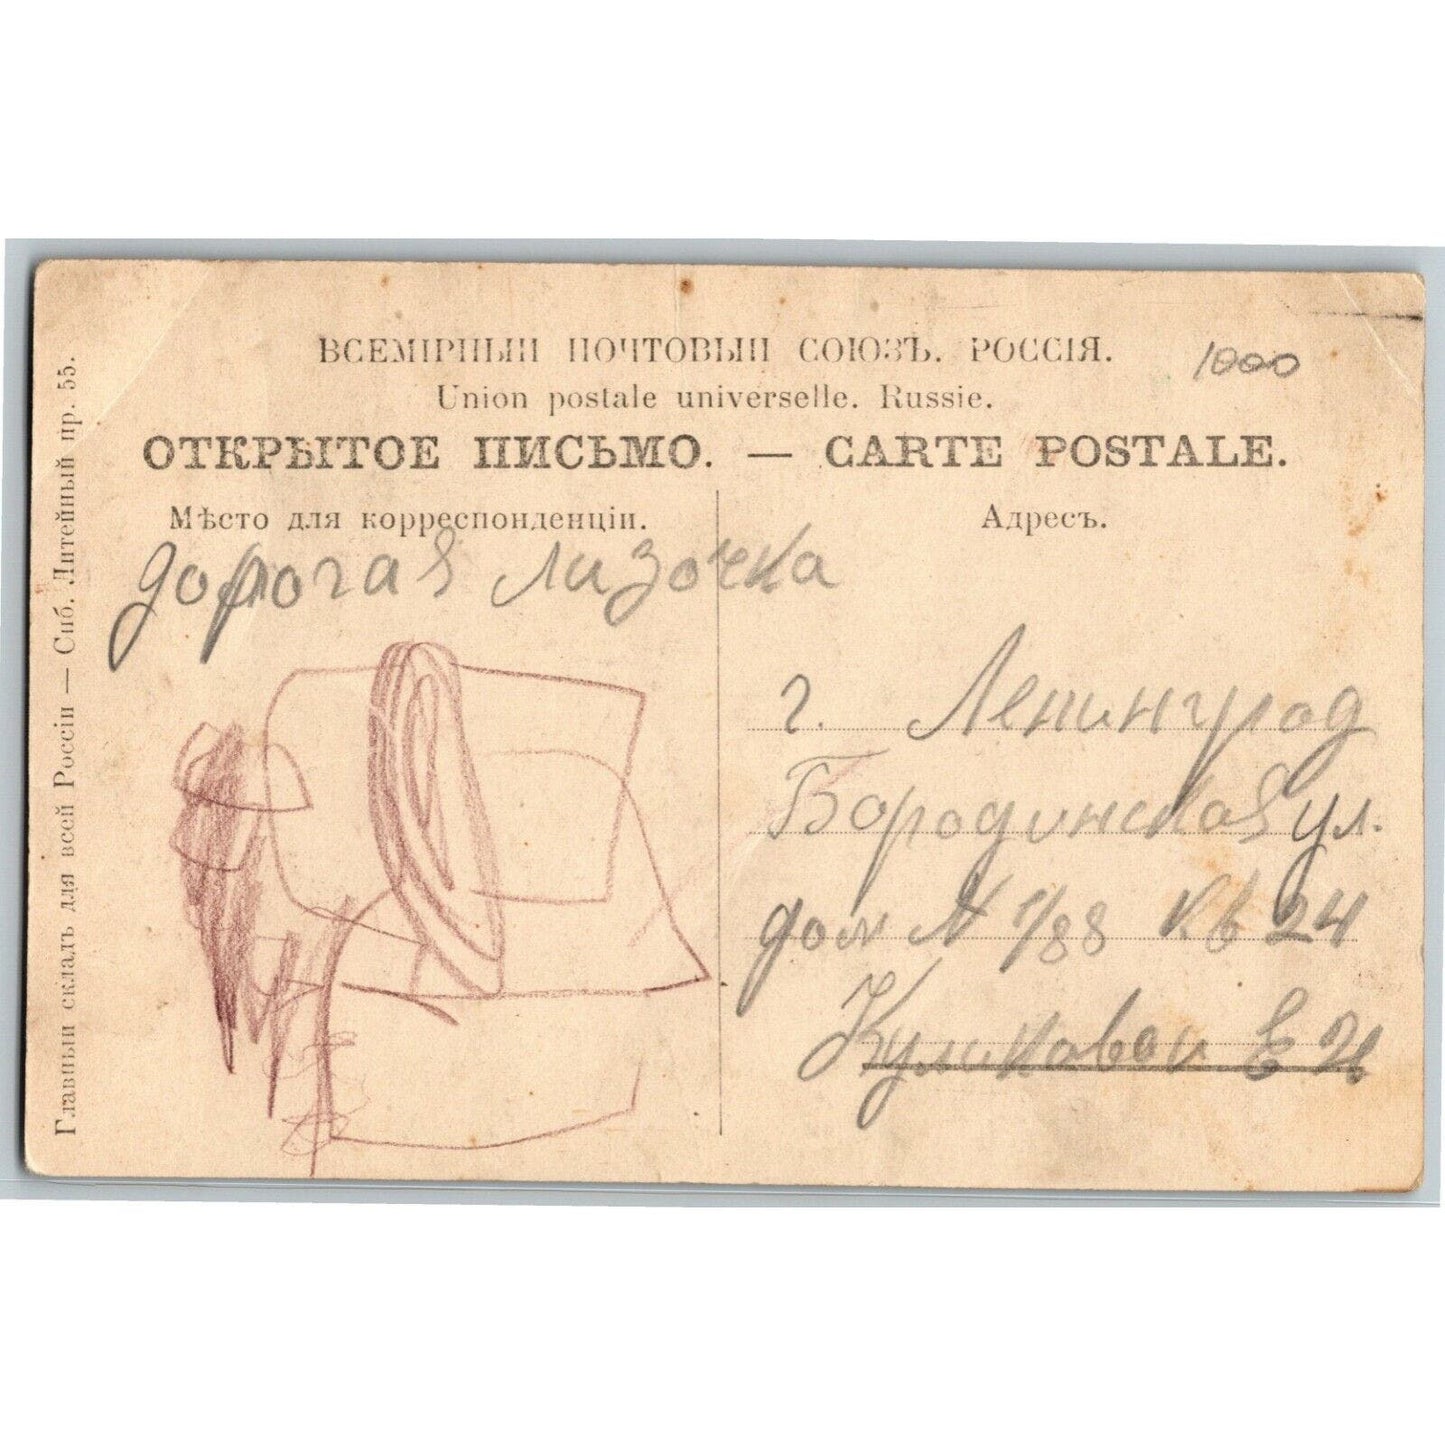 ВСЕМІРНЫЙ ПОЧТОВЫЙ СОЮЗЪ. РОССІЯ.
1000
Union postale universelle. Russie.
ОТКРЫТОЕ ПИСЬМО. — CARTE POSTALE.
Мѣсто для корреспонденціи.
Адресъ.
дорогая лизочка
г. Ленинград
Бородинская ул.
дом N 1/88 кв 24
Е И
Главный складъ для всей Россіи — Спб. Литейный пр. 55.